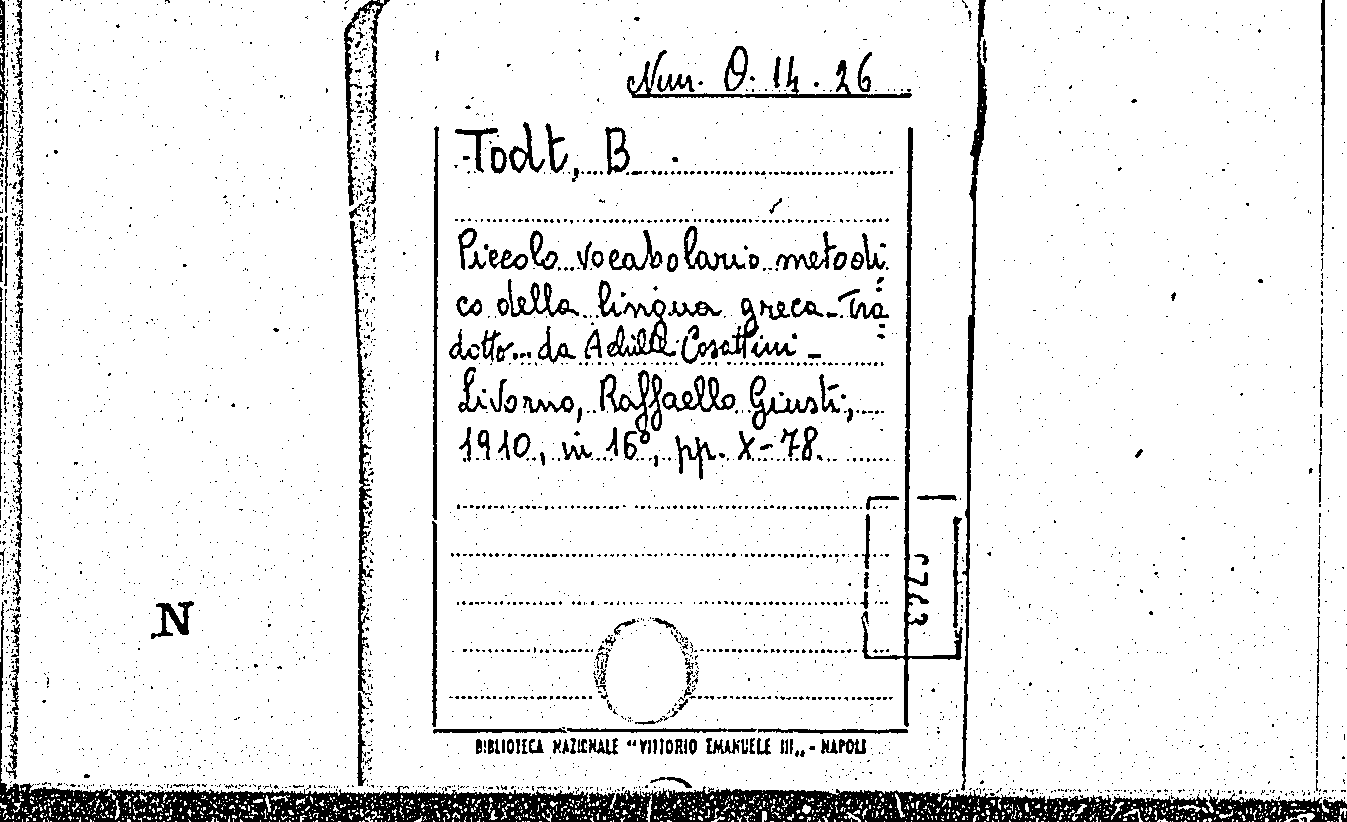 Num. O. 14. 26
Todt, B.
Piccolo vocabolario metodi
co della lingua greca - Tra
dotto... da Achille Cosattini -
Livorno, Raffaello Giusti,
1910, in 16°, pp. X-78.
N
BIBLIOTECA NAZIONALE "VITTORIO EMANUELE III„ - NAPOLI